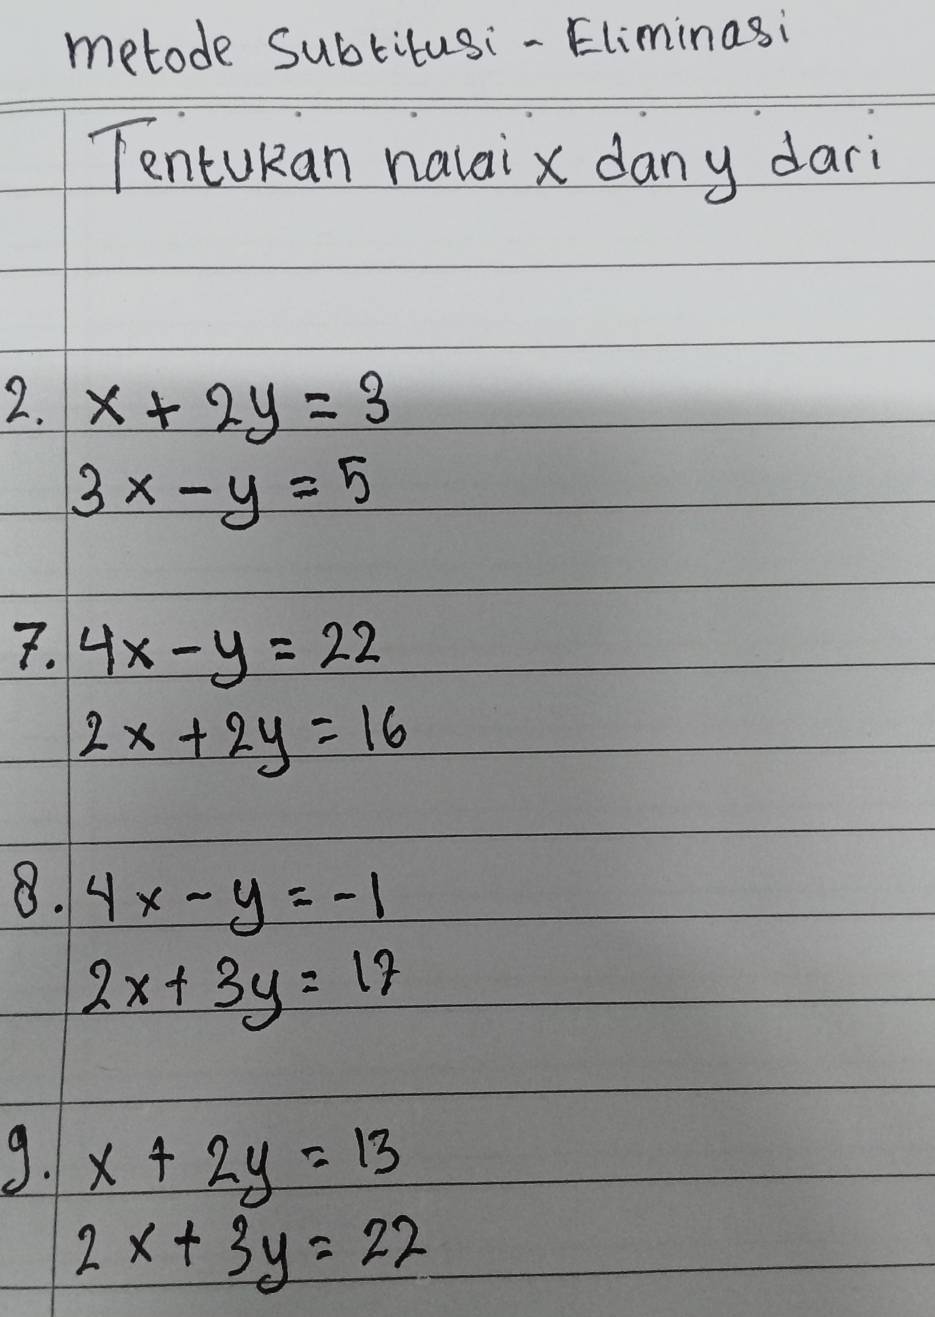 metode Subtitusi - Eliminasi
Tentukan nalai x dan y dari
2. x + 2y = 3
3x - y = 5
7. 4x - y = 22
2x + 2y = 16
8. 4x - y = -1
2x + 3y = 17
9. x + 2y = 13
2x + 3y = 22